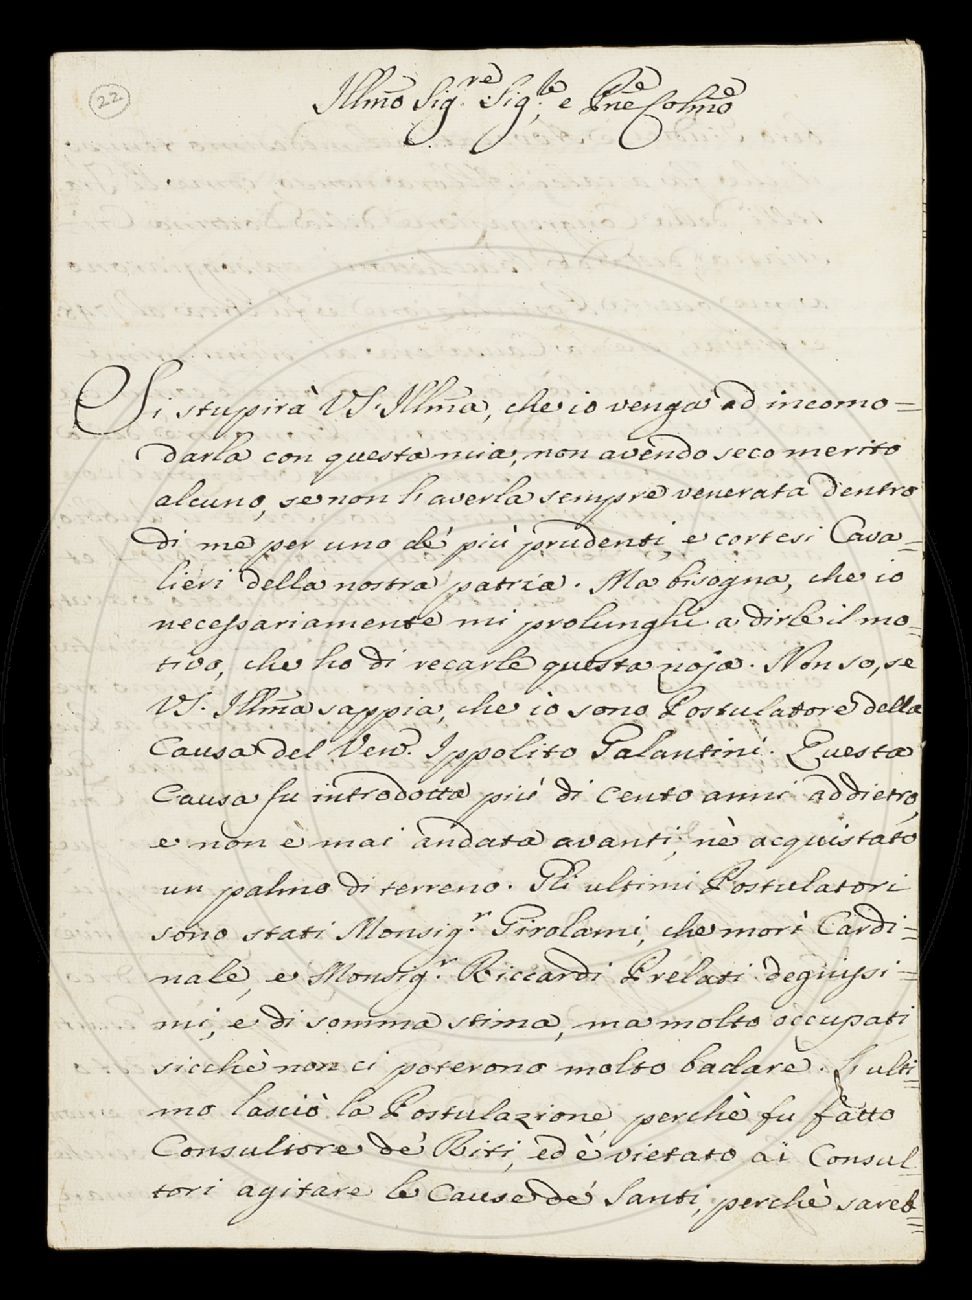 22
Illmo Sig.re Sig.le e Pne Colmo
Si stupirà VS. Illma, che io venga ad incomo=
darla con questa mia, non avendo seco merito
alcuno, se non l'averla sempre venerata dentro
di me per uno de' più prudenti, e cortesi Cava=
lieri della nostra patria. Ma bisogna, che io
necessariamente mi prolunghi a dirle il mo=
tivo, che ho di recarle questa noja. Non so, se
VS. Illma sappia, che io sono Postulatore della
Causa del Ven. Ippolito Galantini. Questa
Causa fu introdotta più di cento anni addietro,
e non è mai andata avanti, nè acquistato
un palmo di terreno. Gli ultimi Postulatori
sono stati Monsig.r Girolami, che morì Cardi=
nale, e Monsig.r Riccardi Prelati degnissi=
mi, e di somma stima, ma molto occupati
sicchè non ci poterono molto badare. L'ulti=
mo lasciò la Postulazione, perchè fu fatto
Consultore de' Riti, ed è vietato ai Consul=
tori agitare le Cause de' Santi, perchè sareb=